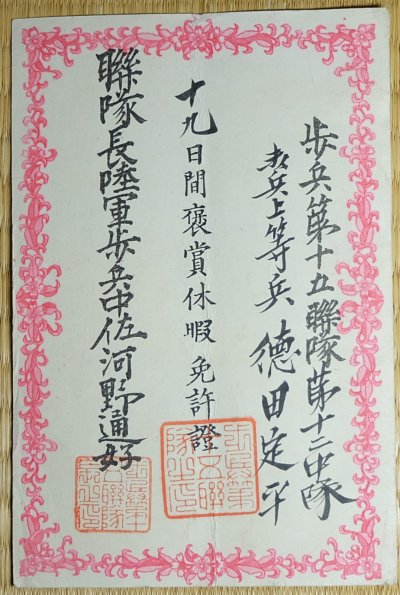 歩兵第十五聯隊第十二中隊
歩兵上等兵 德田定平
十九日間褒賞休暇免許證
聯隊長陸軍歩兵中佐河野通好
歩兵第
五聯
隊之印